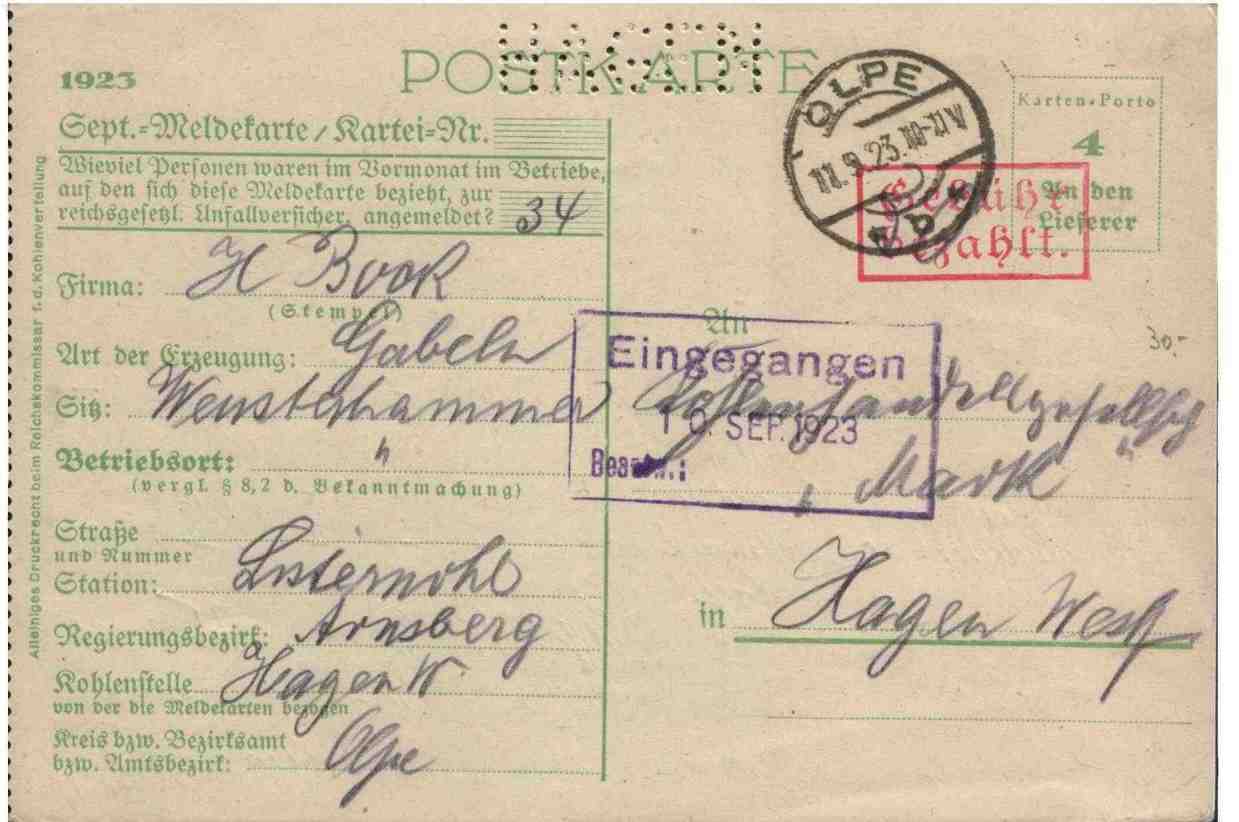 HAGEN
1923
POSTKARTE
Sept.=Meldekarte / Kartei=Nr.
Wieviel Personen waren im Vormonat im Betriebe,
auf den sich diese Meldekarte bezieht, zur
reichsgesetzl. Unfallversicher. angemeldet? 34
Firma: H Book
(Stempel)
Art der Erzeugung: Gabeln
Sitz: Wensterhammer
Betriebsort: "
(vergl. § 8,2 d. Bekanntmachung)
Straße
und Nummer
Station: Listernohl
Regierungsbezirk: Arnsberg
Kohlenstelle Hagen W.
von der die Meldekarten bezogen
Kreis bzw. Bezirksamt
bzw. Amtsbezirk: Olpe
Alleiniges Druckrecht beim Reichskommissar f. d. Kohlenverteilung
OLPE
11.9.23.10-11V
Karten-Porto
4
An den
Lieferer
Gebühr
bezahlt.
30.-
An
Kohlenhandelsgesellsch
" Mark "
in Hagen Westf
Eingegangen
10. SEP. 1923